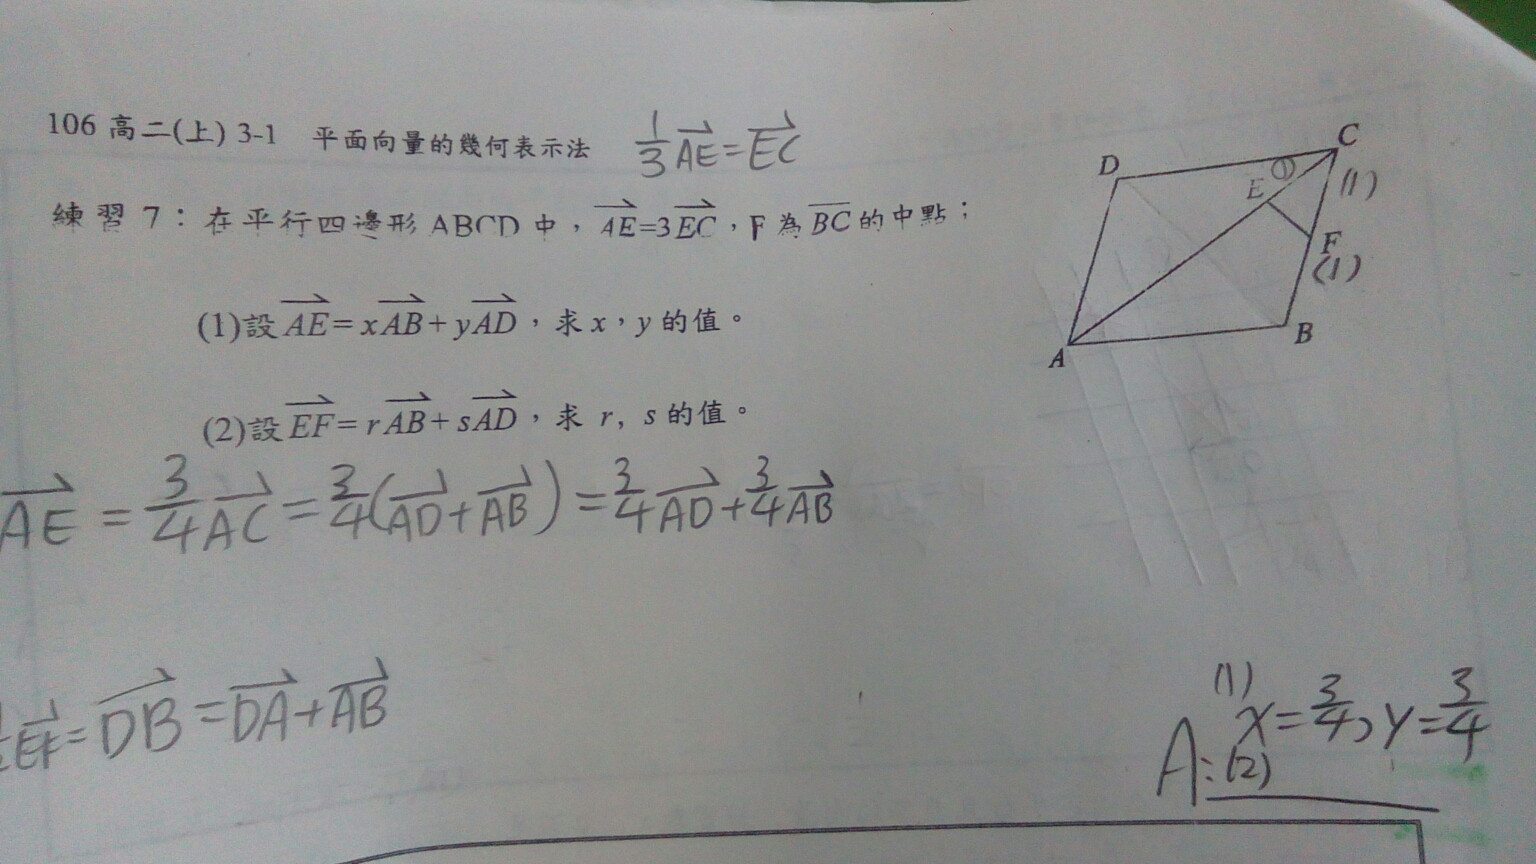 106 高二(上) 3-1 平面向量的幾何表示法 1/3 AE = EC
練習 7：在平行四邊形 ABCD 中，AE=3EC，F 為 BC 的中點；
(1)設 AE = xAB + yAD，求 x，y 的值。
(2)設 EF = rAB + sAD，求 r, s 的值。
D C
E ① (1)
F
(1)
A B
AE = 3/4 AC = 3/4(AD + AB) = 3/4 AD + 3/4 AB
EF = DB = DA + AB
A: (1) x = 3/4, y = 3/4
(2)